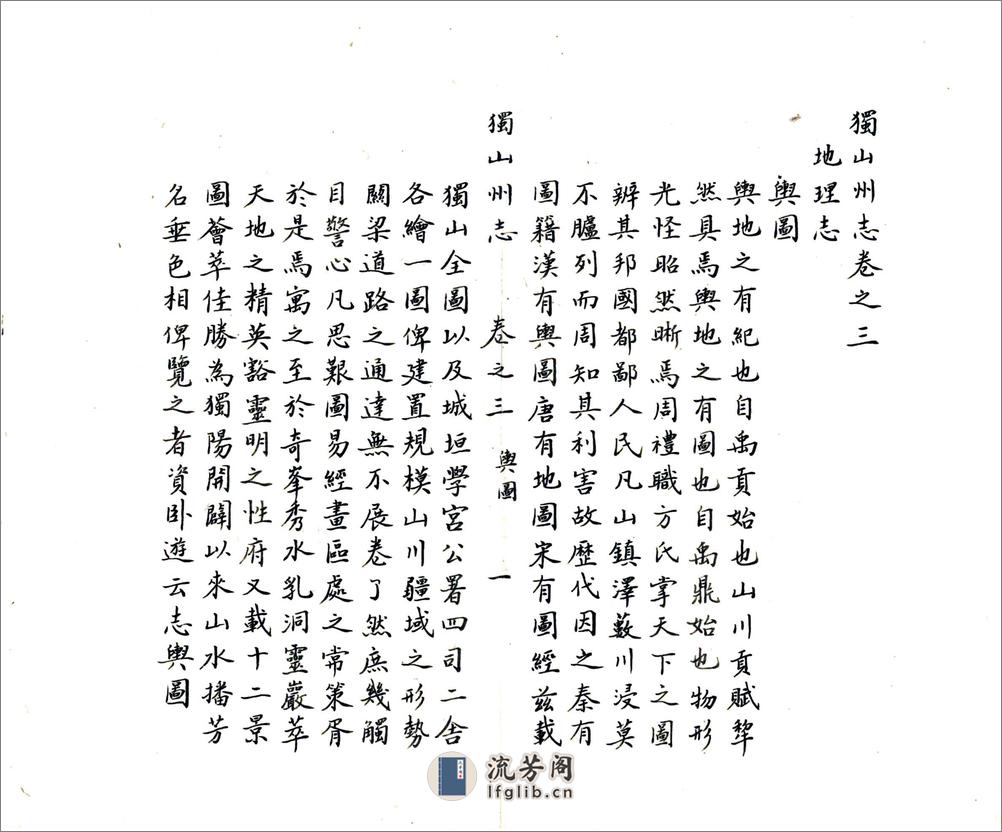 獨山州志卷之三
地理志
輿圖
輿地之有紀也自禹貢始也山川貢賦犂
然具焉輿地之有圖也自禹鼎始也物形
光怪昭然晣焉周禮職方氏掌天下之圖
辨其邦國都鄙人民凡山鎮澤藪川浸莫
不臚列而周知其利害故歷代因之秦有
圖籍漢有輿圖唐有地圖宋有圖經兹載
獨山州志 卷之三 輿圖 一
獨山全圖以及城垣學宮公署四司二舍
各繪一圖俾建置規模山川疆域之形勢
關梁道路之通達無不展卷了然庶幾觸
目警心凡思艱圖易經畫區處之常策胥
於是焉寓之至於奇峯秀水乳洞靈巖萃
天地之精英豁靈明之性府又載十二景
圖薈萃佳勝為獨陽開闢以來山水播芳
名垂色相俾覽之者資卧遊云志輿圖
流芳阁
lfglib.cn